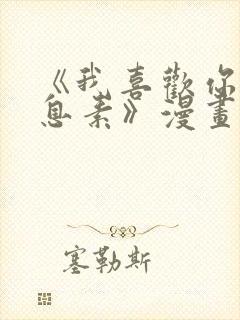 《我喜歡你
息素》漫畫
塞勒斯